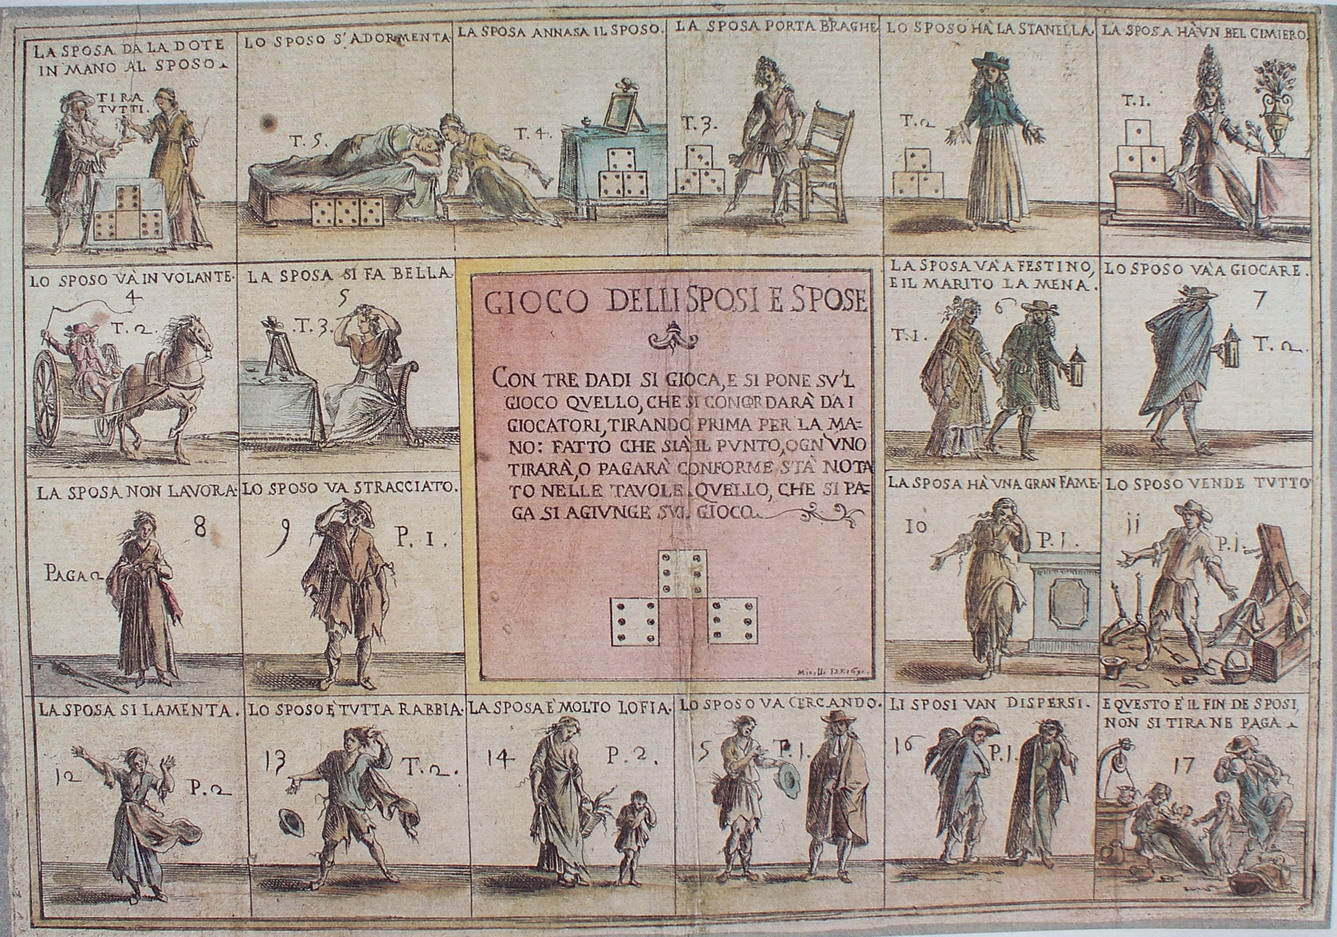 LA SPOSA DA LA DOTE
IN MANO AL SPOSO
TIRA
TVTTI.
LO SPOSO S'ADORMENTA
T. 5.
LA SPOSA ANNASA IL SPOSO.
T. 4.
LA SPOSA PORTA BRAGHE
T. 3.
LO SPOSO HÀ LA STANELLA.
T. 2
LA SPOSA HÀ VN BEL CIMIERO.
T. 1.
LO SPOSO VÀ IN VOLANTE.
4
T. 2.
LA SPOSA SI FA BELLA.
5
T. 3.
GIOCO DELLI SPOSI E SPOSE
CON TRE DADI SI GIOCA, E SI PONE SV'L
GIOCO QVELLO, CHE SI CONCORDARÀ DA I
GIOCATORI, TIRANDO PRIMA PER LA MA=
NO: FATTO CHE SIA IL PVNTO, OGN'VNO
TIRARÀ, O PAGARÀ CONFORME STÀ NOTA
TO NELLE TAVOLE. QVELLO, CHE SI PA=
GA SI AGIVNGE SVL GIOCO.
LA SPOSA VÀ A FESTINO,
E IL MARITO LA MENA.
6
T. 1.
LO SPOSO VÀ A GIOCARE.
7
T. 2.
LA SPOSA NON LAVORA.
8
PAGA 2
LO SPOSO VA STRACCIATO.
9
P. 1.
LA SPOSA HÀ VNA GRAN FAME.
10
P. 1.
LO SPOSO VENDE TVTTO
11
P. 1.
LA SPOSA SI LAMENTA.
12
P. 2
LO SPOSO È TVTTA RABBIA.
13
T. 2.
LA SPOSA È MOLTO LOFIA.
14
P. 2.
LO SPOSO VA CERCANDO.
5
P. 1.
LI SPOSI VAN DISPERSI.
16
P. 1
E QVESTO È IL FIN DE SPOSI,
NON SI TIRA NE PAGA
17